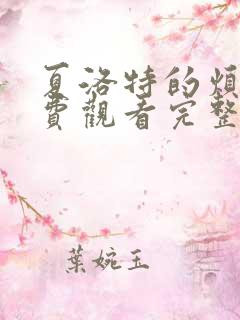 夏洛特的煩
費觀看完整
葉婉玉